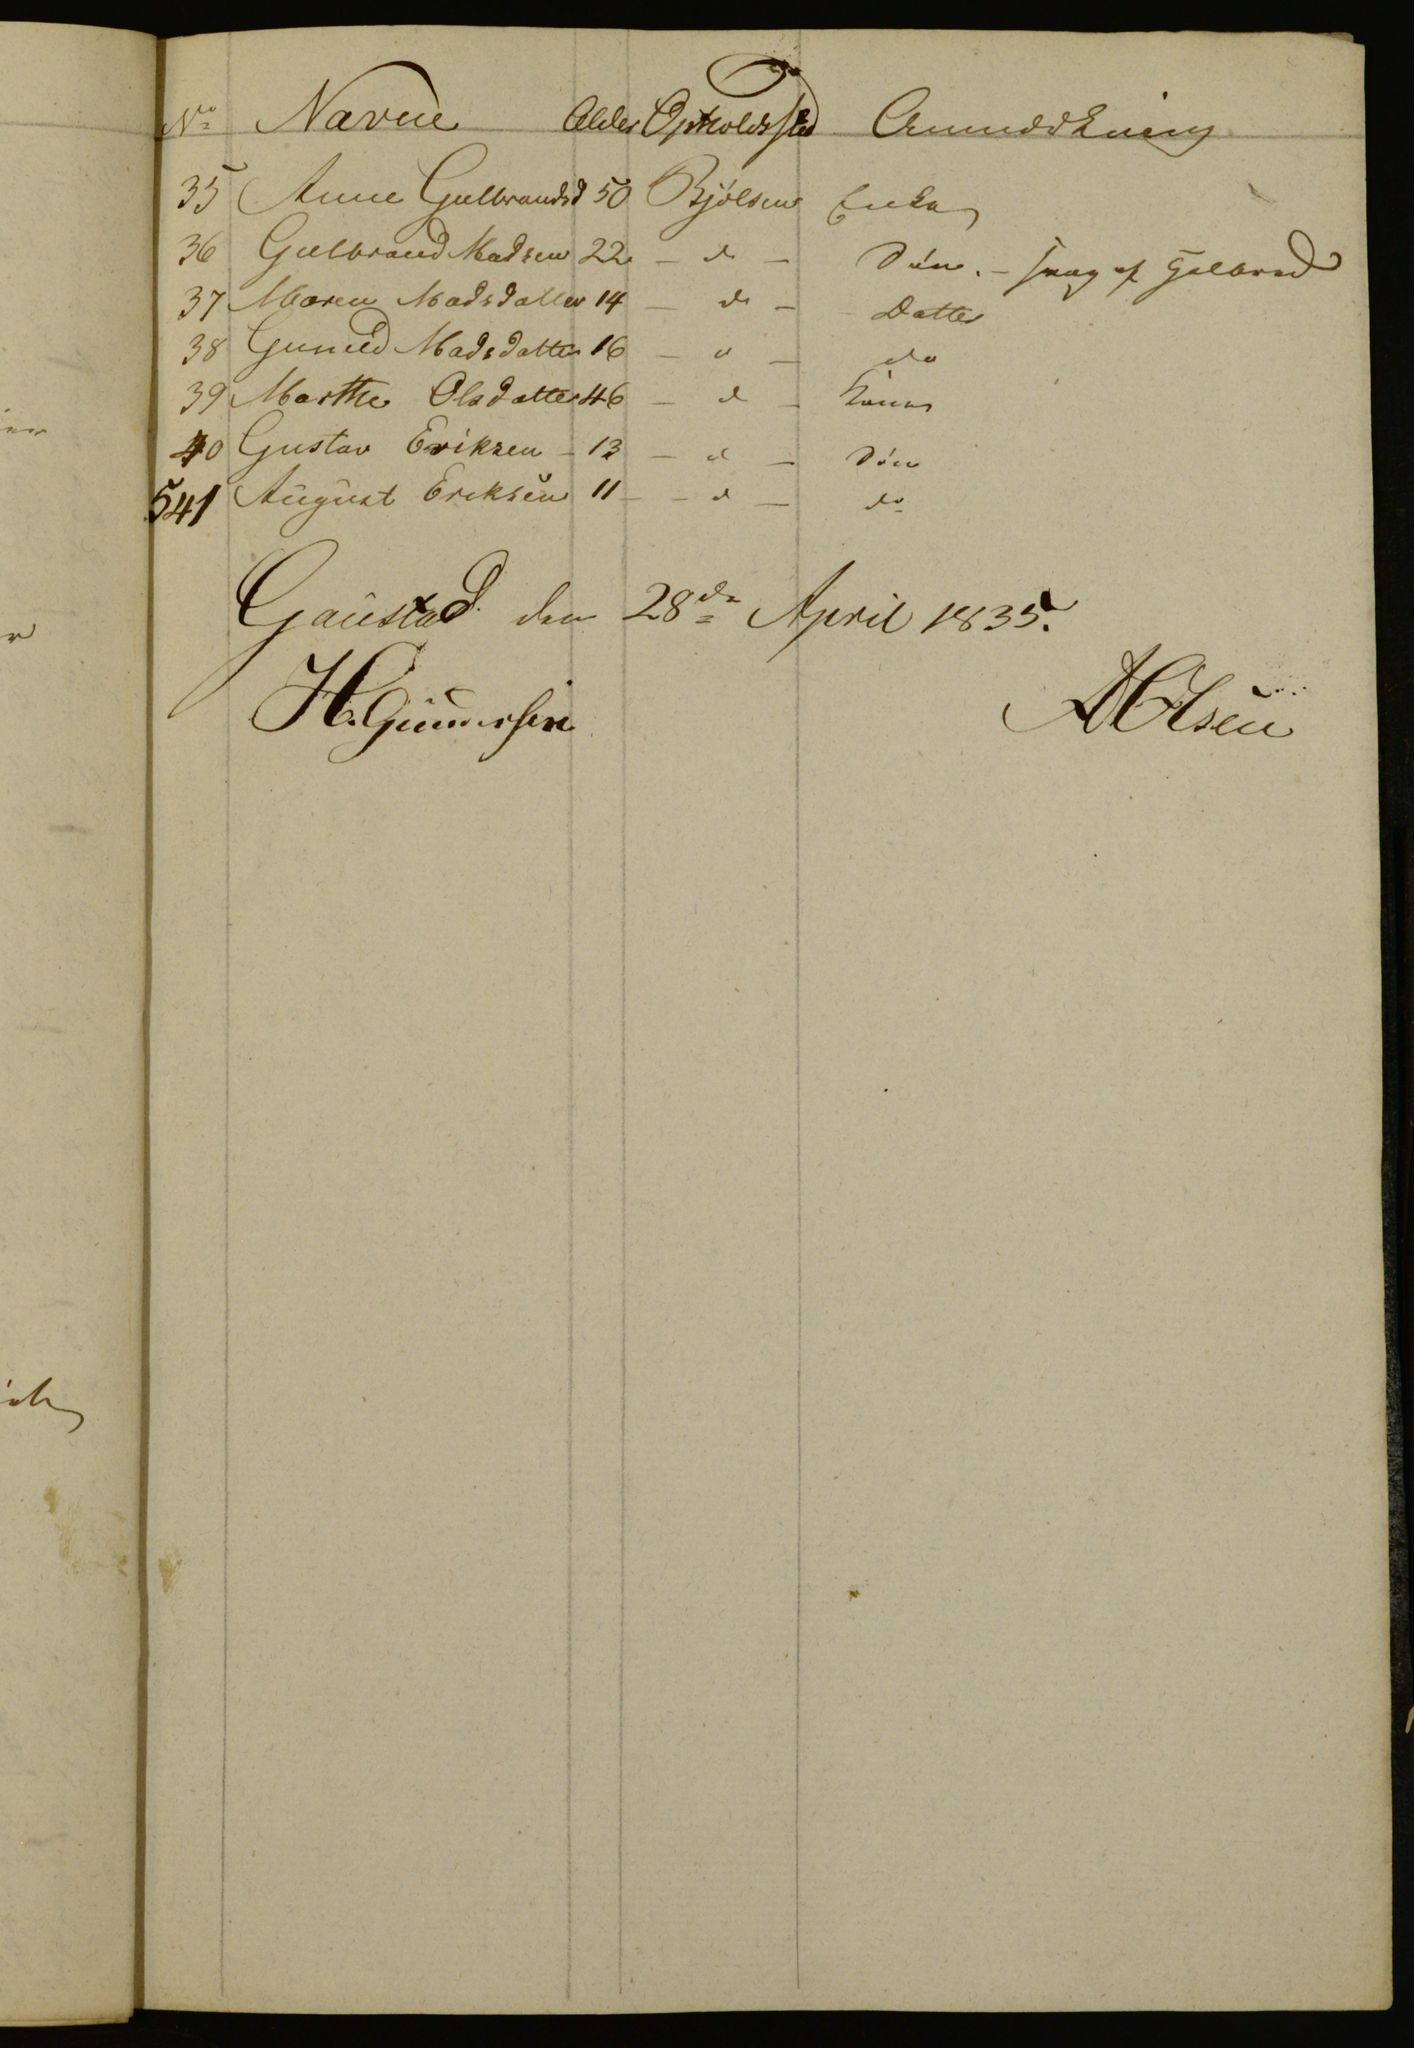 No Navne Alder Opholdssted Anmærkning
35 Anne Gulbrandsd 50 Bjølsen Enke
36 Gulbrand Madsen 22 - d - Søn. - svag af Helbred
37 Maren Madsdatter 14 - d - Datter
38 Gunild Madsdatter 16 - d - do
39 Marthe Olsdatter 46 - d - Kone
40 Gustav Eriksen - 13 - d - Søn
541 August Eriksen 11 - - d - do
Gaustad den 28de April 1835.
H. Gundersen AOlsen